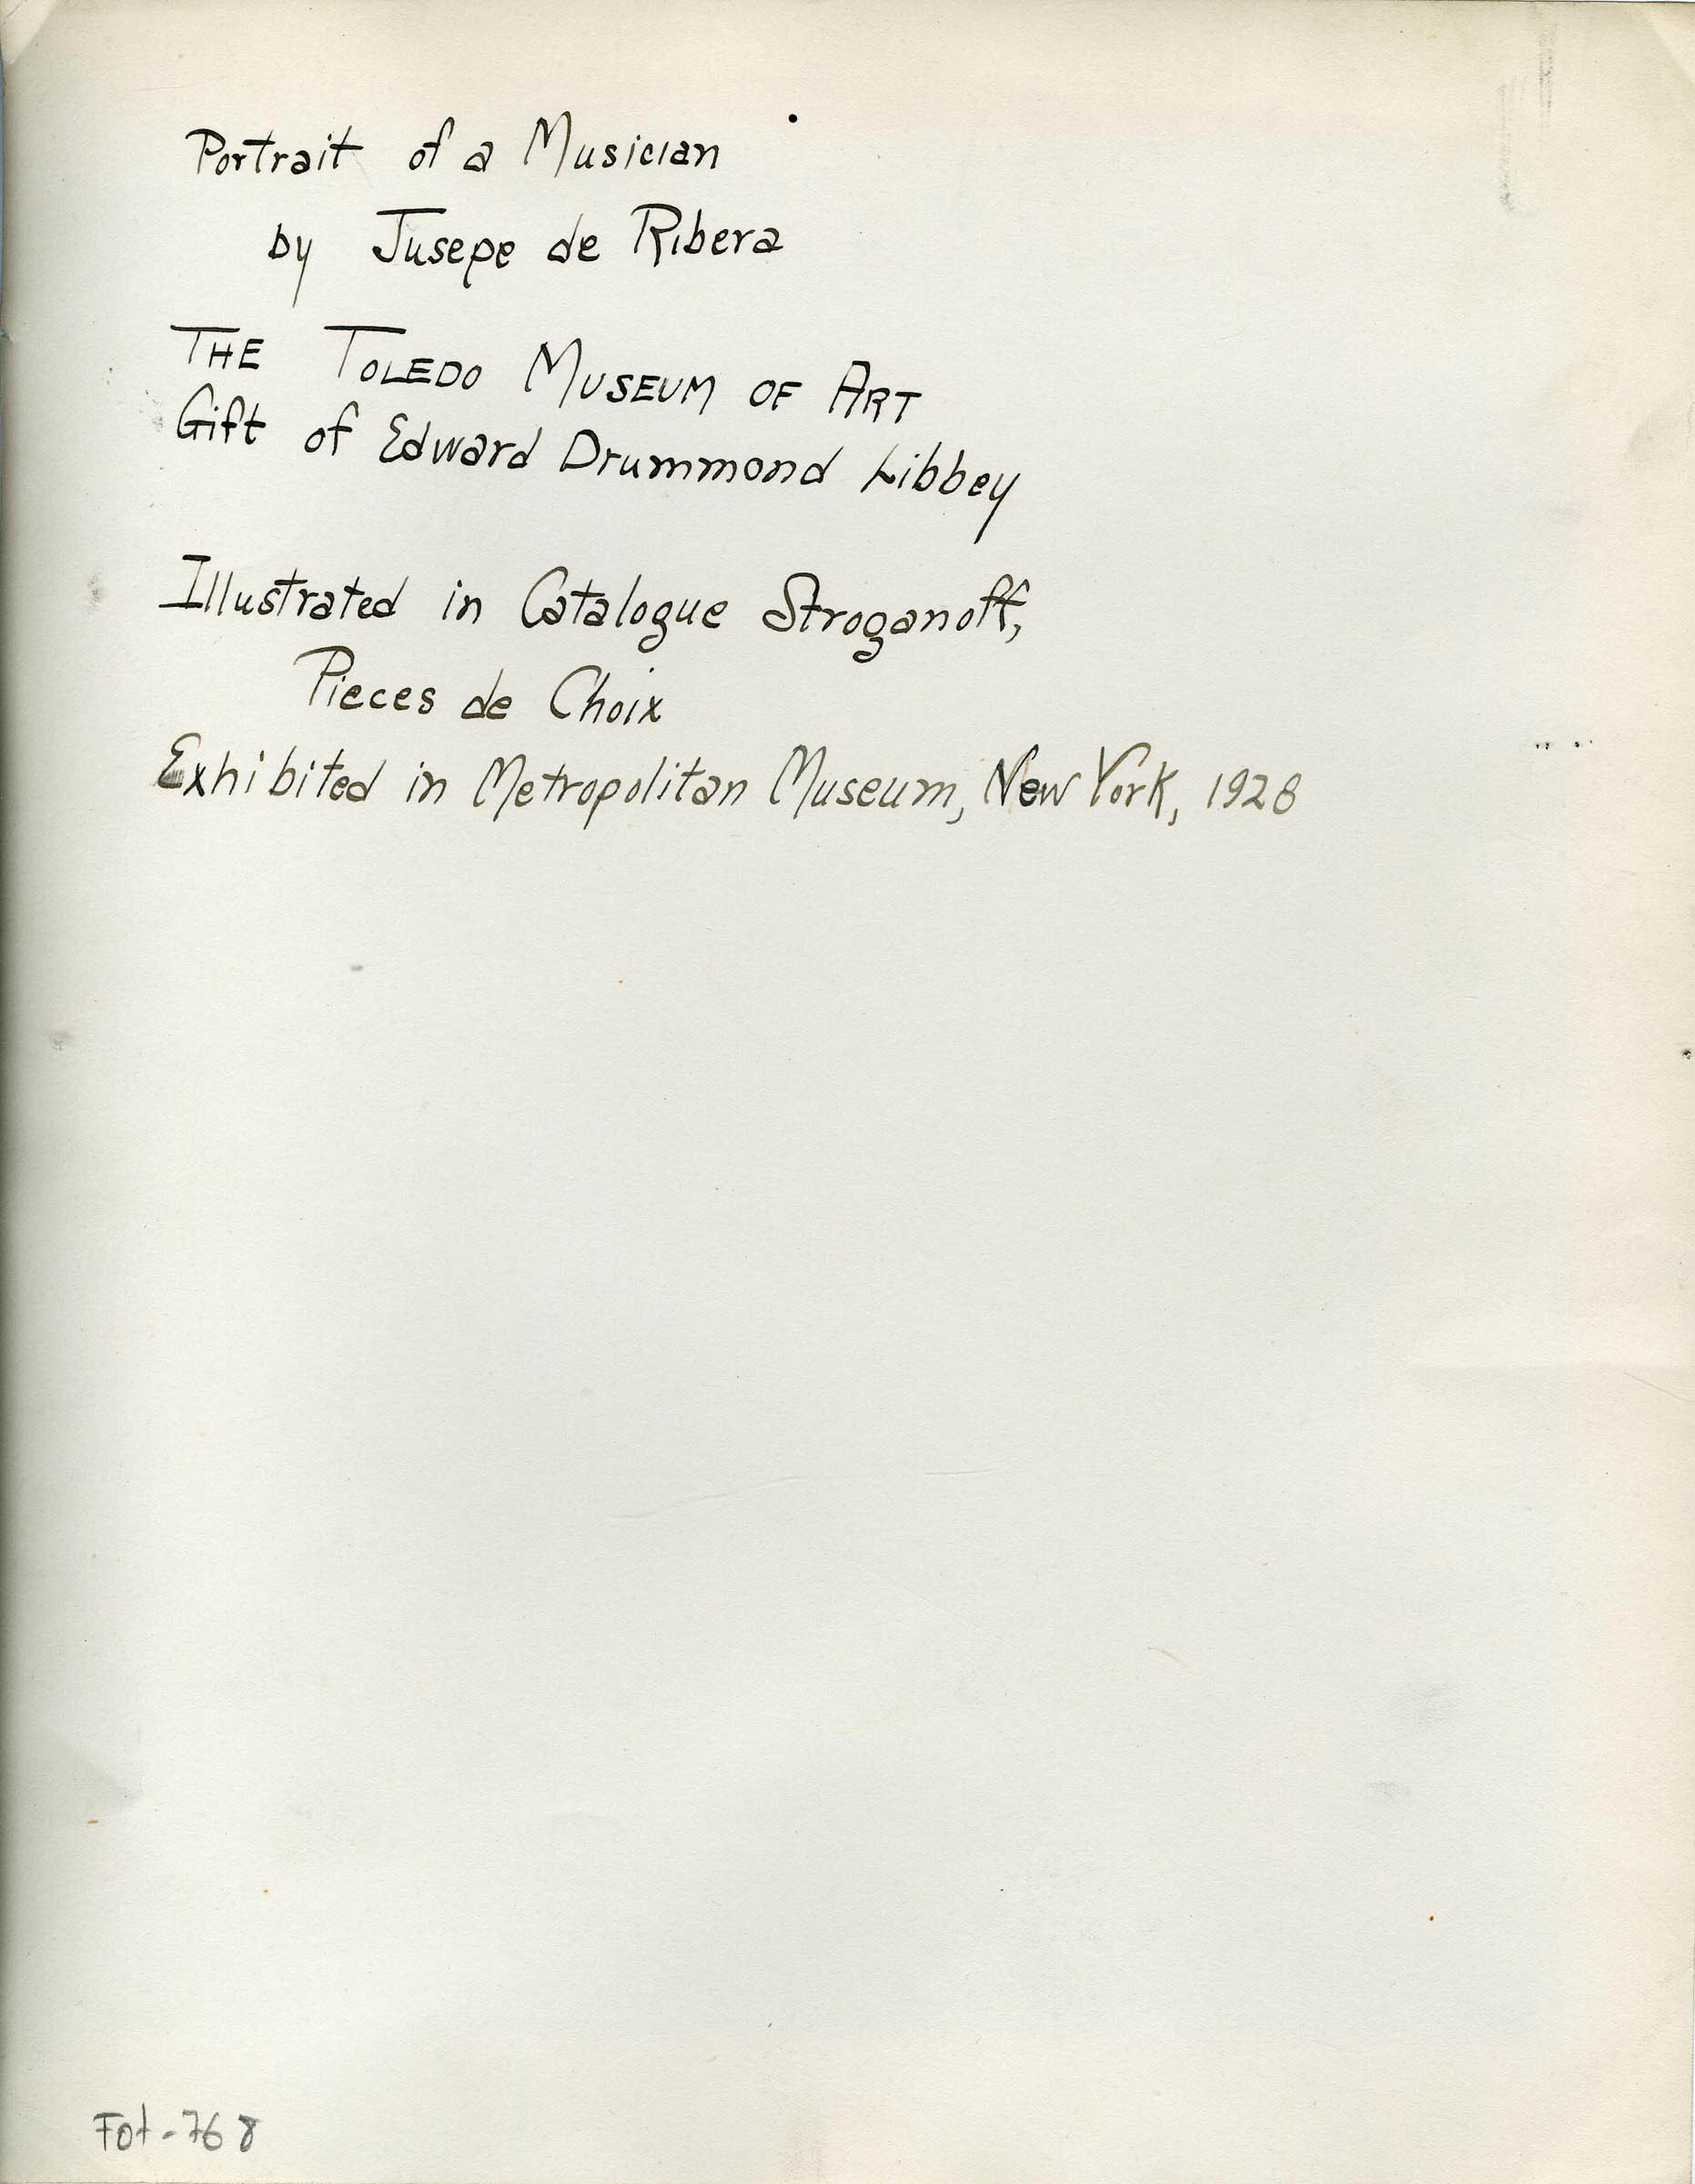 Portrait of a Musician
by Jusepe de Ribera
THE TOLEDO MUSEUM OF ART
Gift of Edward Drummond Libbey
Illustrated in Catalogue Stroganoff,
Pieces de Choix
Exhibited in Metropolitan Museum, New York, 1928
Fot-768